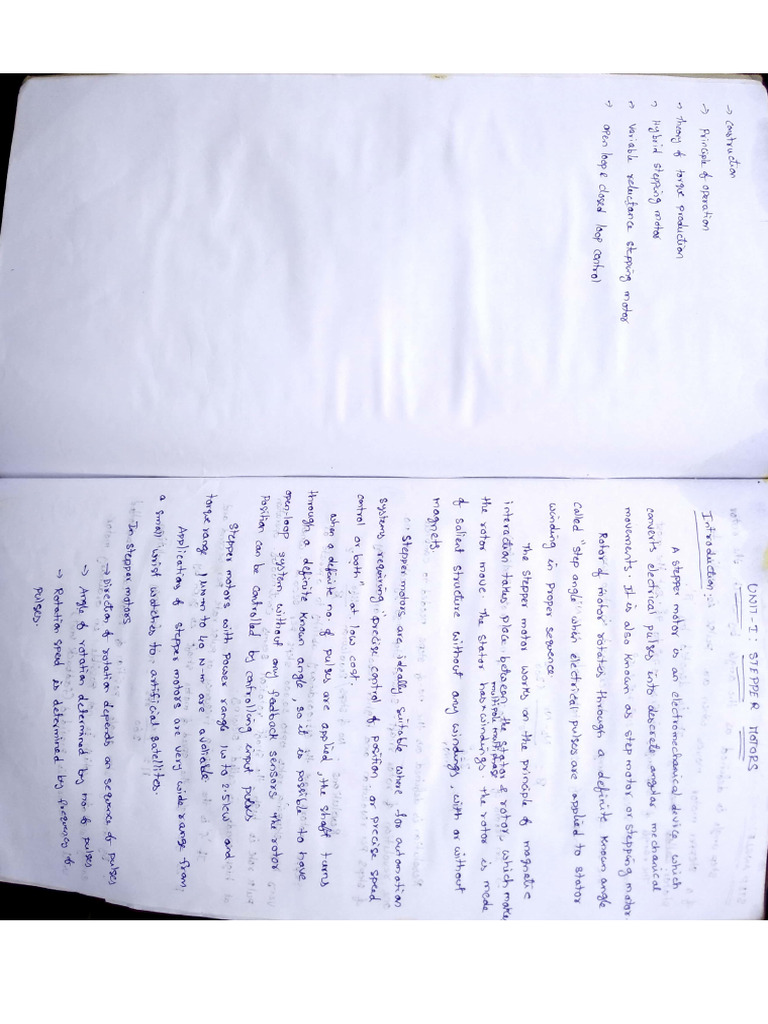 → Construction
→ Principle of operation
→ Theory of torque production
→ Hybrid stepping motor
→ Variable reluctance stepping motor
→ Open loop & closed loop control
UNIT-I: STEPPER MOTORS
Introduction:
A stepper motor is an electromechanical device which
converts electrical pulses into descrete angular mechanical
movements. It is also known as step motor or stepping motor.
Rotor of motor rotates through a definite known angle
called "step angle" when electrical pulses are applied to stator
winding in proper sequence
The stepper motor works on the principle of magnetic
interaction takes place between the stator & rotor, which make
multipole multiphase
the rotor move. The stator has windings the rotor is made
of salient structure without any windings, with or without
magnets.
Stepper motors are ideally suitable where for automation
systems requiring precise control of position or precise speed
control or both, at low cost.
When a definite no. of pulses are applied, the shaft turns
through a definite known angle so it is possible to have
open-loop system without any feedback sensors the rotor
Position can be controlled by controlling input pulses
Stepper motors with power range 1w to 2.5kw and
torque range 1 N-m to 40 N-m are avaliable
Applications of stepper motors are very wide range from
a small wrist watches to artificial satellites.
In stepper motors
→ Direction of rotation depends on sequence of pulses
→ Angle of rotation determined by no. of pulses
→ Rotation speed is determined by frequency of
pulses.